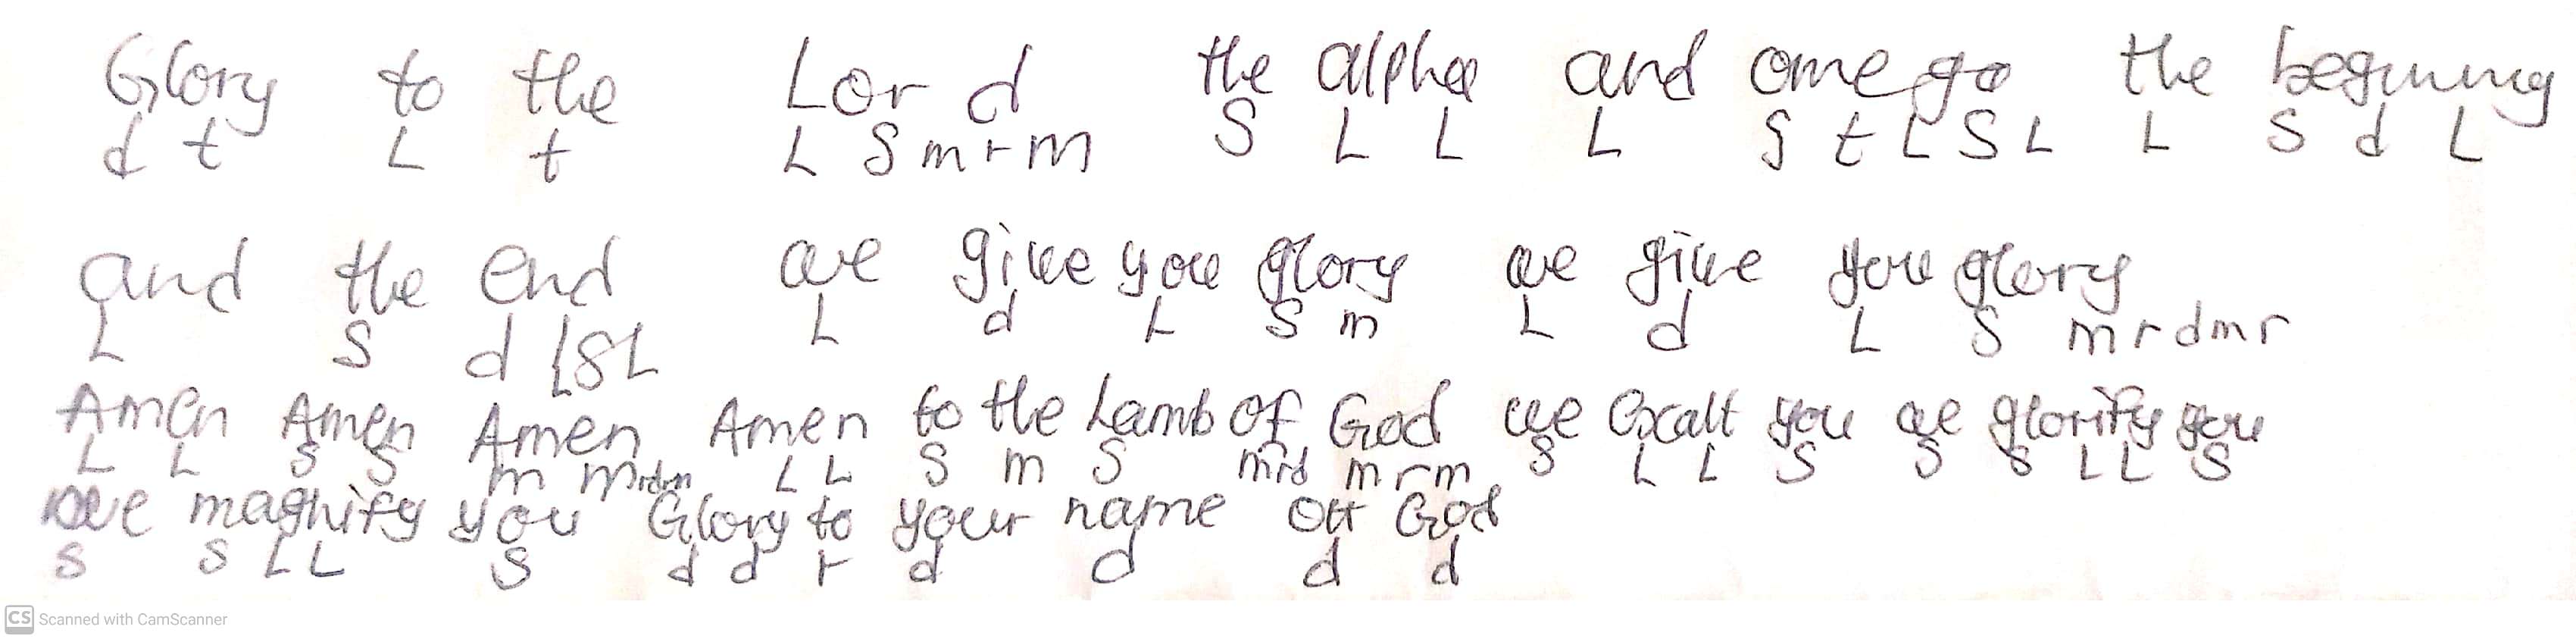 Glory to the Lor d the alpha and omega the begining
d t L t L S m r m S L L L S t L S L L S d L
and the end we give you glory we give you glory
L S d L S L L d L S m L d L S m r d m r
Amen Amen Amen Amen to the Lamb of God we Exalt you we glorify you
L L S S m m r d m L L S m S m r d m r m S L L S S S L L S
we magnify you Glory to your name oh God
S S L L S d d r d d d d
CS Scanned with CamScanner